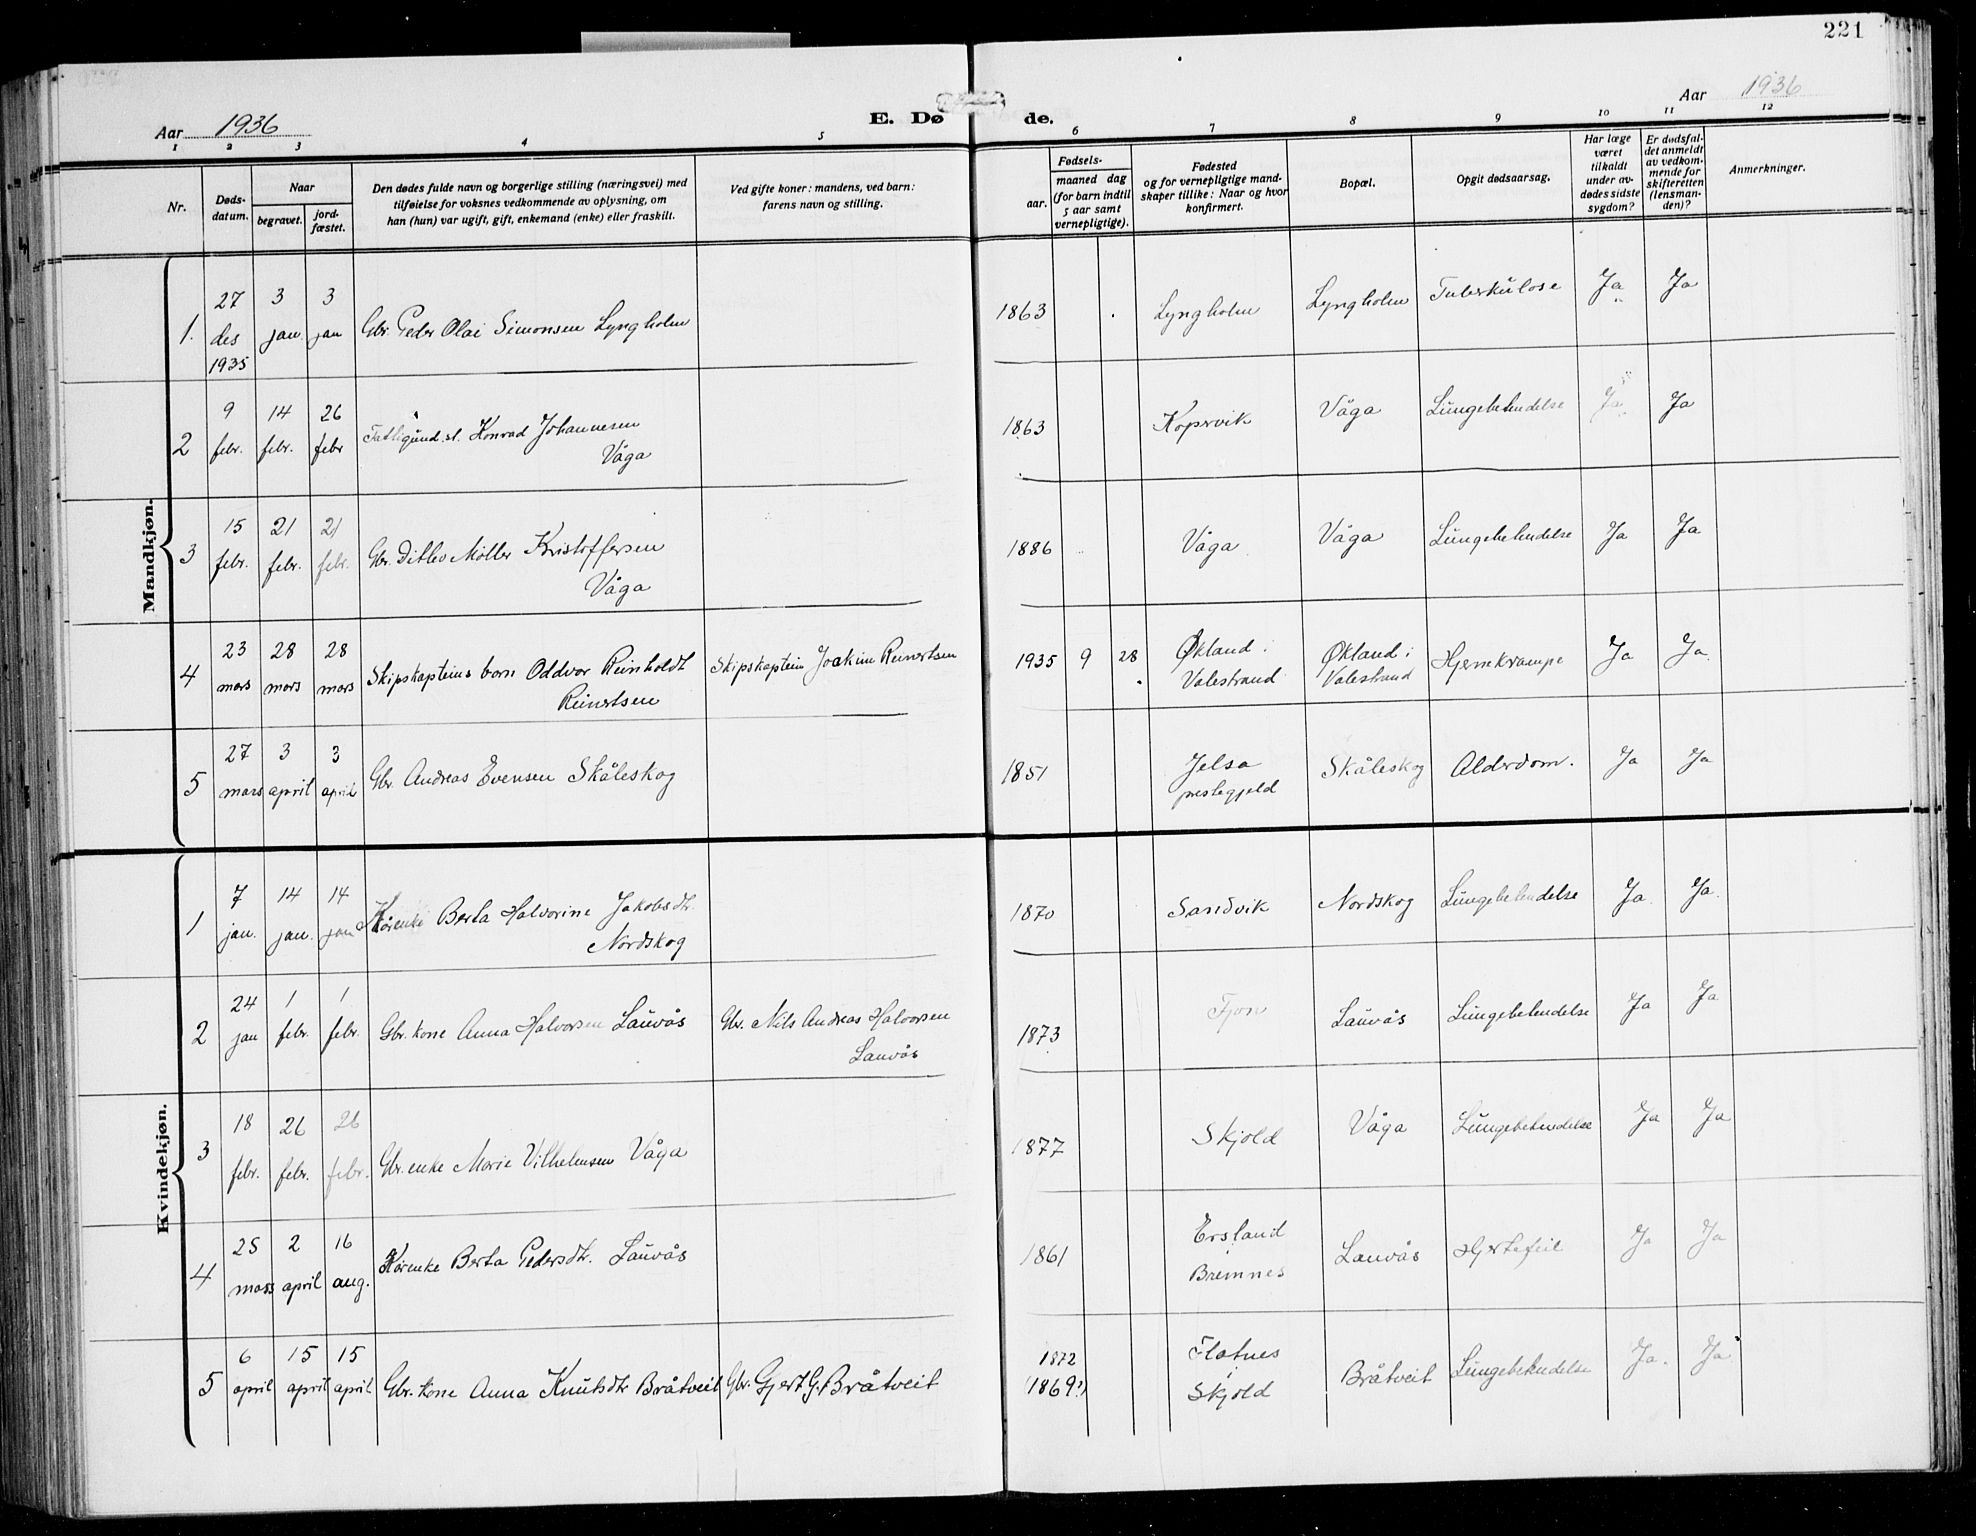 221
Aar 1936
E. Døde.
Aar 1936
1 2 3 4 5 6 7 8 9 10 11 12
Nr.
Døds-
datum.
Naar
begravet.
jord-
fæstet.
Den dødes fulde navn og borgerlige stilling (næringsvei) med
tilføielse for voksnes vedkommende av oplysning, om
han (hun) var ugift, gift, enkemand (enke) eller fraskilt.
Ved gifte koner: mandens, ved barn:
farens navn og stilling.
Fødsels-
aar.
maaned dag
(for barn indtil
5 aar samt
vernepligtige).
Fødested
og for vernepligtige mand-
skaper tillike: Naar og hvor
konfirmert.
Bopæl.
Opgit dødsaarsag.
Har læge
været
tilkaldt
under av-
dødes sidste
sygdom?
Er dødsfal-
det anmeldt
av vedkom-
mende for
skifteretten
(lensman-
den)?
Anmerkninger.
Mandkjøn.
1. 27 des 1935 3 jan 3 jan Gbr. Peder Olai Simonsen Lyngholm 1863 Lyngholm Lyngholm Tuberkulose Ja Ja
2 9 febr. 14 febr. 26 febr Konrad Johannesen
Våga 1863 Kopervik Våga Lungebetendelse Ja Ja
3 15 febr. 21 febr. 21 febr. Gbr. Ditlev Møller Kristoffersen
Våga 1886 Våga Våga Lungebetendelse Ja Ja
4 23 mars 28 mars 28 mars Skipskapteins barn Oddvar Reinholdt
Reinertsen Skipskaptein Joakim Reinertsen 1935 9 28 Økland i
Valestrand Økland i
Valestrand Hjernekrampe Ja Ja.
5 27 mars 3 april 3 april Gbr. Andreas Evensen Skåleskog 1851 Jelsa
prestegjeld Skåleskog Alderdom. Ja Ja
Kvindekjøn.
1 7 jan. 14 jan. 14 jan Kårenke Berta Halvorine Jakobsdtr.
Nordskog 1870 Sandvik Nordskog Lungebetendelse Ja. Ja.
2 24 jan 1 febr. 1 febr. Gbr. kone Anna Halvorsen Lauvås Gbr. Nils Andreas Halvorsen
Lauvås 1873 Fjon Lauvås Lungebetendelse Ja Ja
3 18 febr. 26 febr. 26 febr. Gbr. enke Marie Vilhelmsen Våga 1877 Skjold Våga Lungebetendelse Ja Ja
4 25 mars 2 april 16 aug. Kårenke Berta Pedersdtr. Lauvås 1861 Ersland
Bremnes Lauvås Hjertefeil Ja Ja
5 6 april 15 april 15 april Gbr. kone Anna Knutsdtr Bråtveit Gbr. Gjert G. Bråtveit 1872
(1869?) Flatnes
Skjold Bråtveit Lungebetendelse Ja. Ja